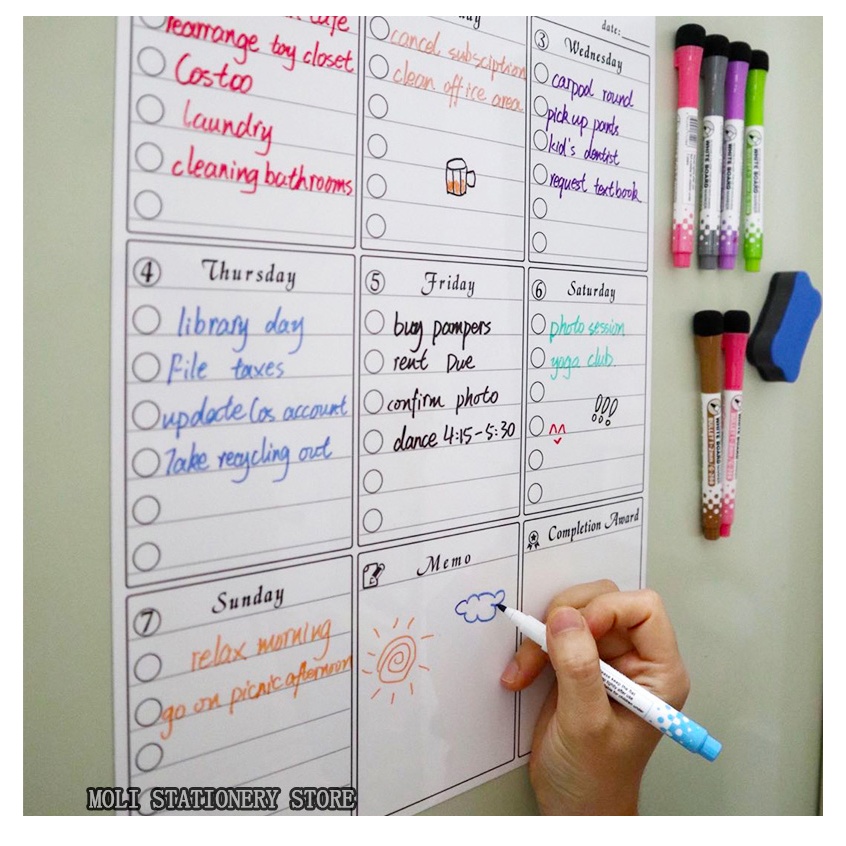 date:
cafe
rearrange toy closet
Costoo
laundry
cleaning bathrooms
cancel subsciption
clean office area
3 Wednesday
carpool round
pick up pants
kid's dentist
request textbook
4 Thursday
library day
File taxes
update Los account
Take recycling out
5 Friday
buy pampers
rent Due
confirm photo
dance 4:15-5:30
6 Saturday
photo session
yoga club
!!!
7 Sunday
relax morning
go on picnic afternoon
Memo
Completion Award
WHITE BOARD
WHITE BOARD
WHITE BOARD
WHITE BOARD
WHITE BOARD
MOLI STATIONERY STORE